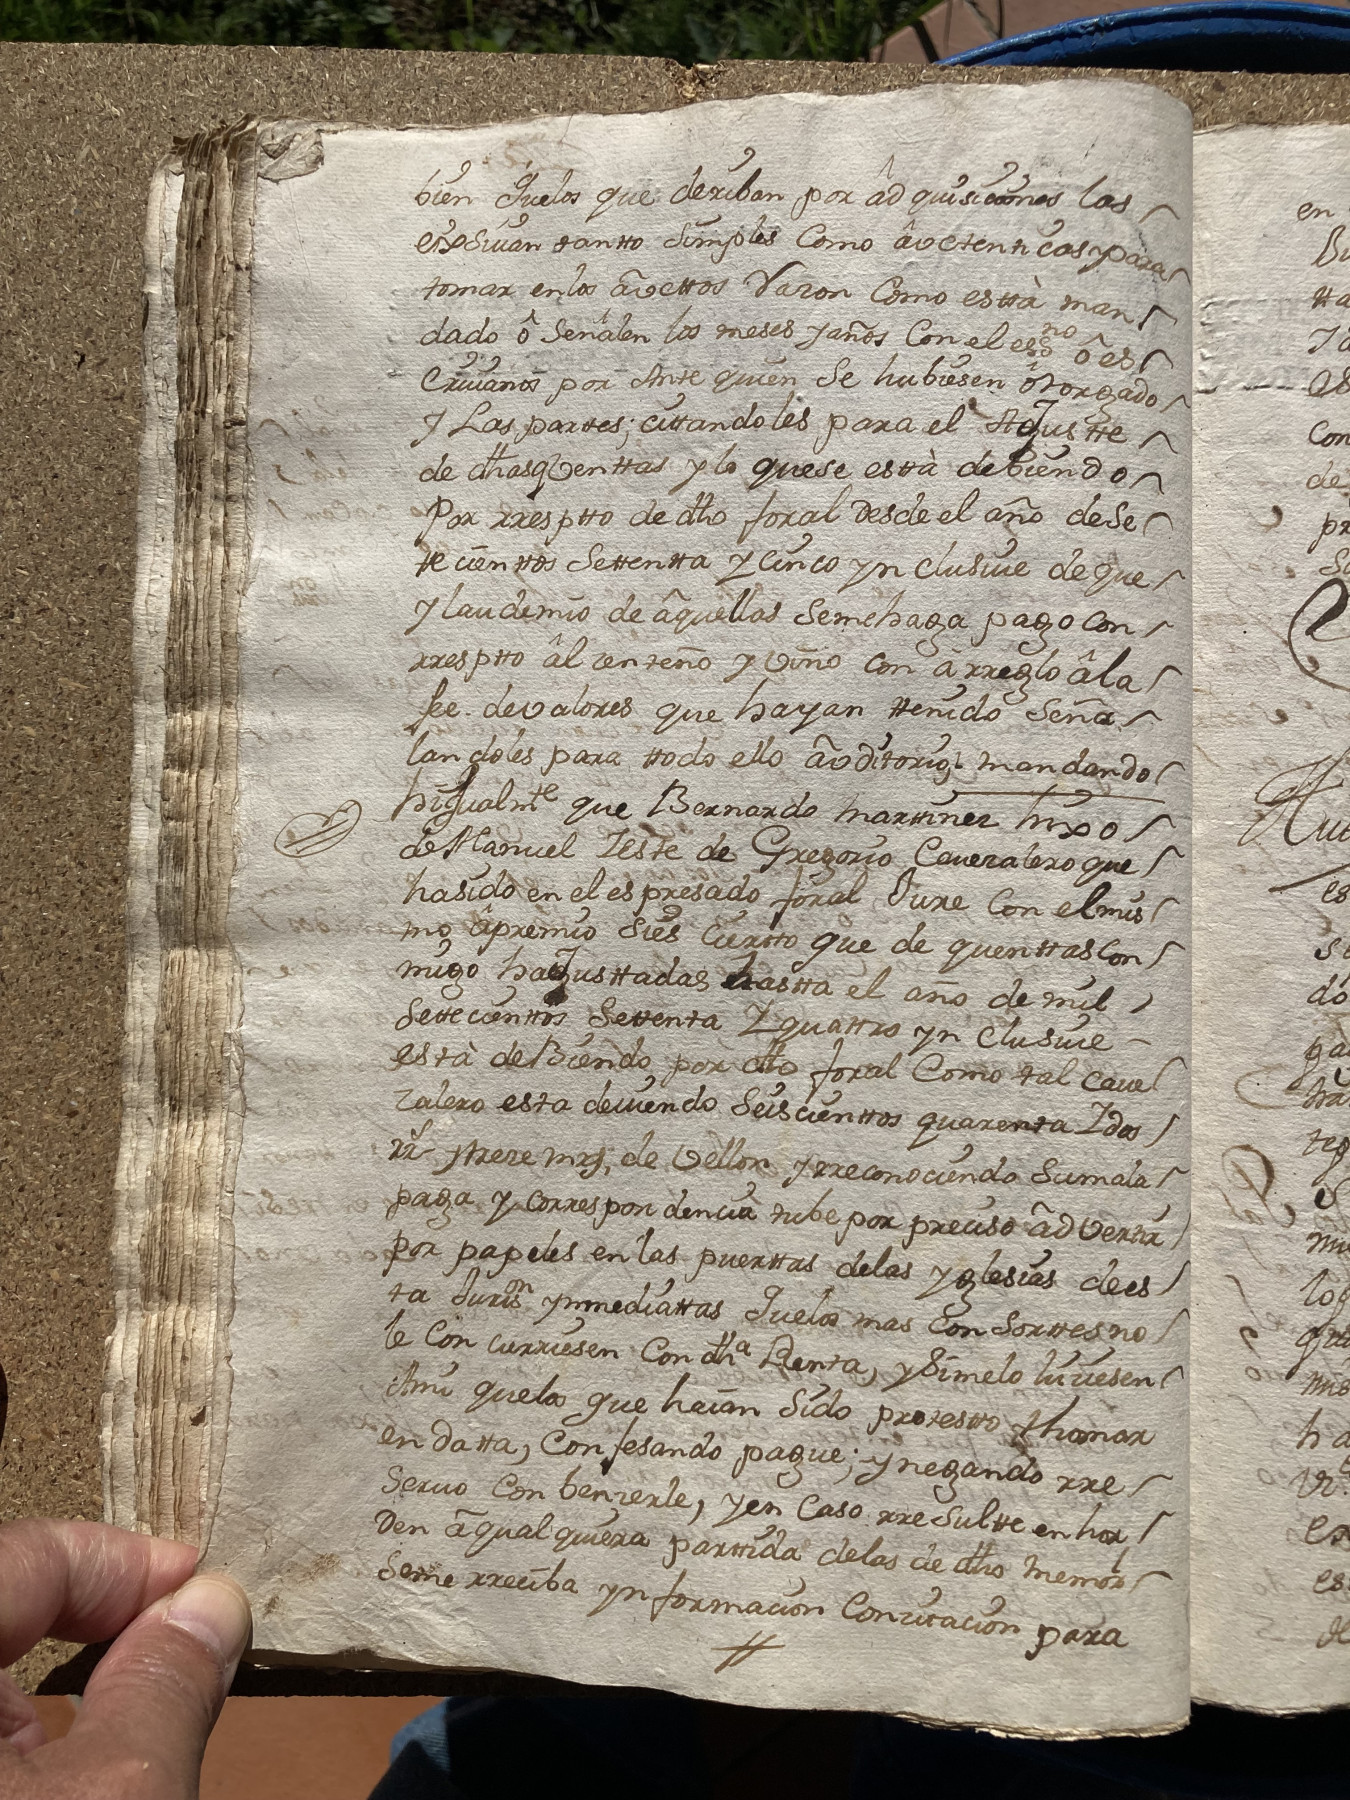 bien Juelos que deriban por âdquisiciones las
exsivan tantto Simples Como âvctenticas y para
tomar enlos âvcttos Razon Como esttà man
dado ô Señalen los meses y años Con el essno ô es
Crivanos por Ante quien Se hubiesen ôtorgado
y Las parttes; cittandoles para el Ajustte
de dhasqventtas y lo quese esttà debiendo
Por rresptto de dho foral Desde el año deSe
tecienttos Settentta y Cinco ynclusive de que
y laudemio de âquellas Semehaga pago con
rresptto âl zenteño y vino con àrreglo âla
fee. devalores que hayan ttenido Seña
landoles para ttodo ello âvditorio; mandando
higualmte que Bernardo Martinez hixo
de Manuel Yeste de Gregorio Cavezalero que
hasido en el espresado foral Jure Con elmis
mo âpremio Sies Ciertto que de quenttascon
migo hajusttadas hastta el año de mil
Settecienttos Settenta Y quattro ynclusive
està deBiendo por dho foral Como tal cave
zalero esta deviendo Seiscienttos quarenta Ydos
rr. ytreze mrs, de Vellon yrreconociendo Sumala
paga y correspondencia tube por preciso âdVertir
por papeles en las puerttas delas yglesias dees
ta Jurisn ynmediattas Juelos mas ConSorttes no
le Con curriesen Con dha Renta, ySimelo hiciesen
Ami quelos que haian Sido protestto thomar
en datta, Confesando pague; ynegando rre
Servo Conbenzerle, yen Caso rreSultte enhor
Den âqualquiera parttida delas de dho memor
Seme rreciba ynformacion Concitacion para